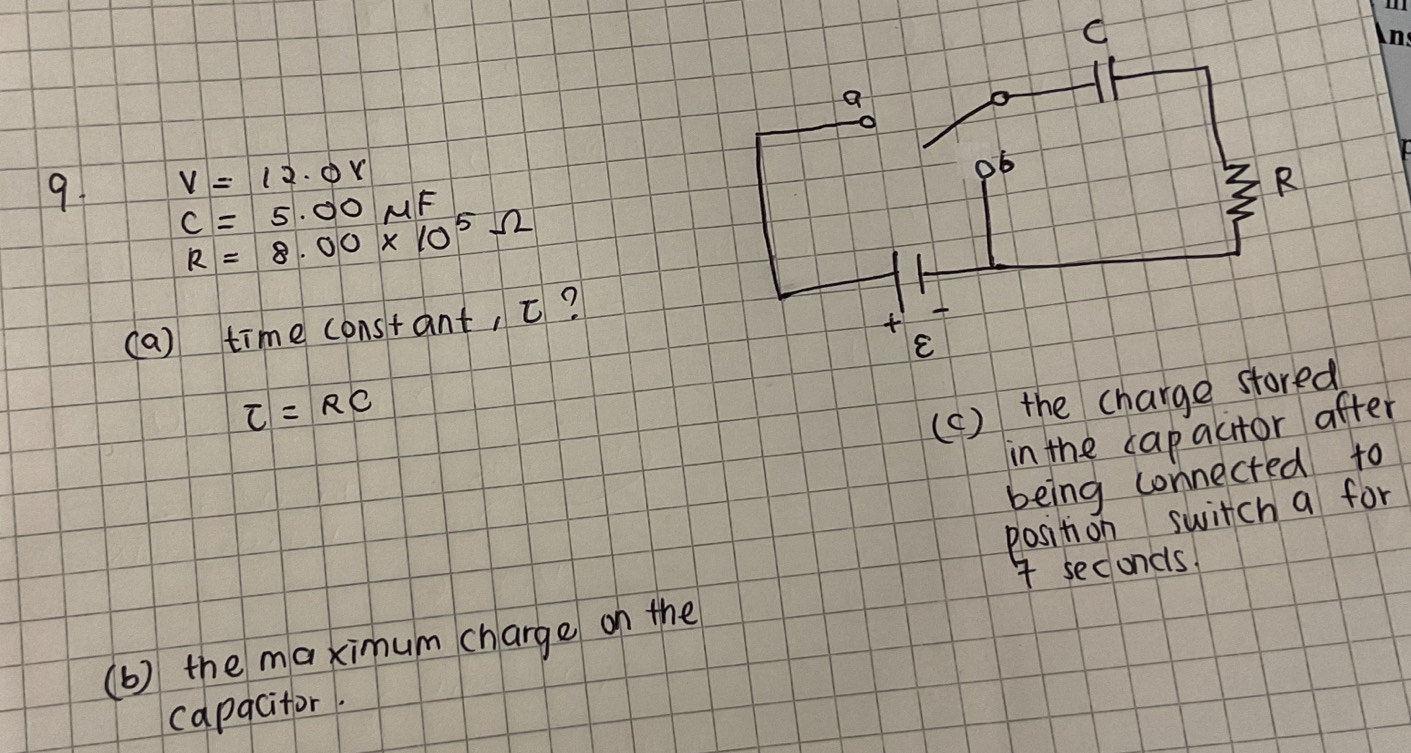 9.
V = 12.0V
C = 5.00 μF
R = 8.00 × 10⁵ Ω
(a) time constant, τ?
τ = RC
(b) the maximum charge on the
capacitor.
C
a
b
R
+ -
ε
(c) the charge stored
in the capacitor after
being connected to
position switch a for
7 seconds.
Ans